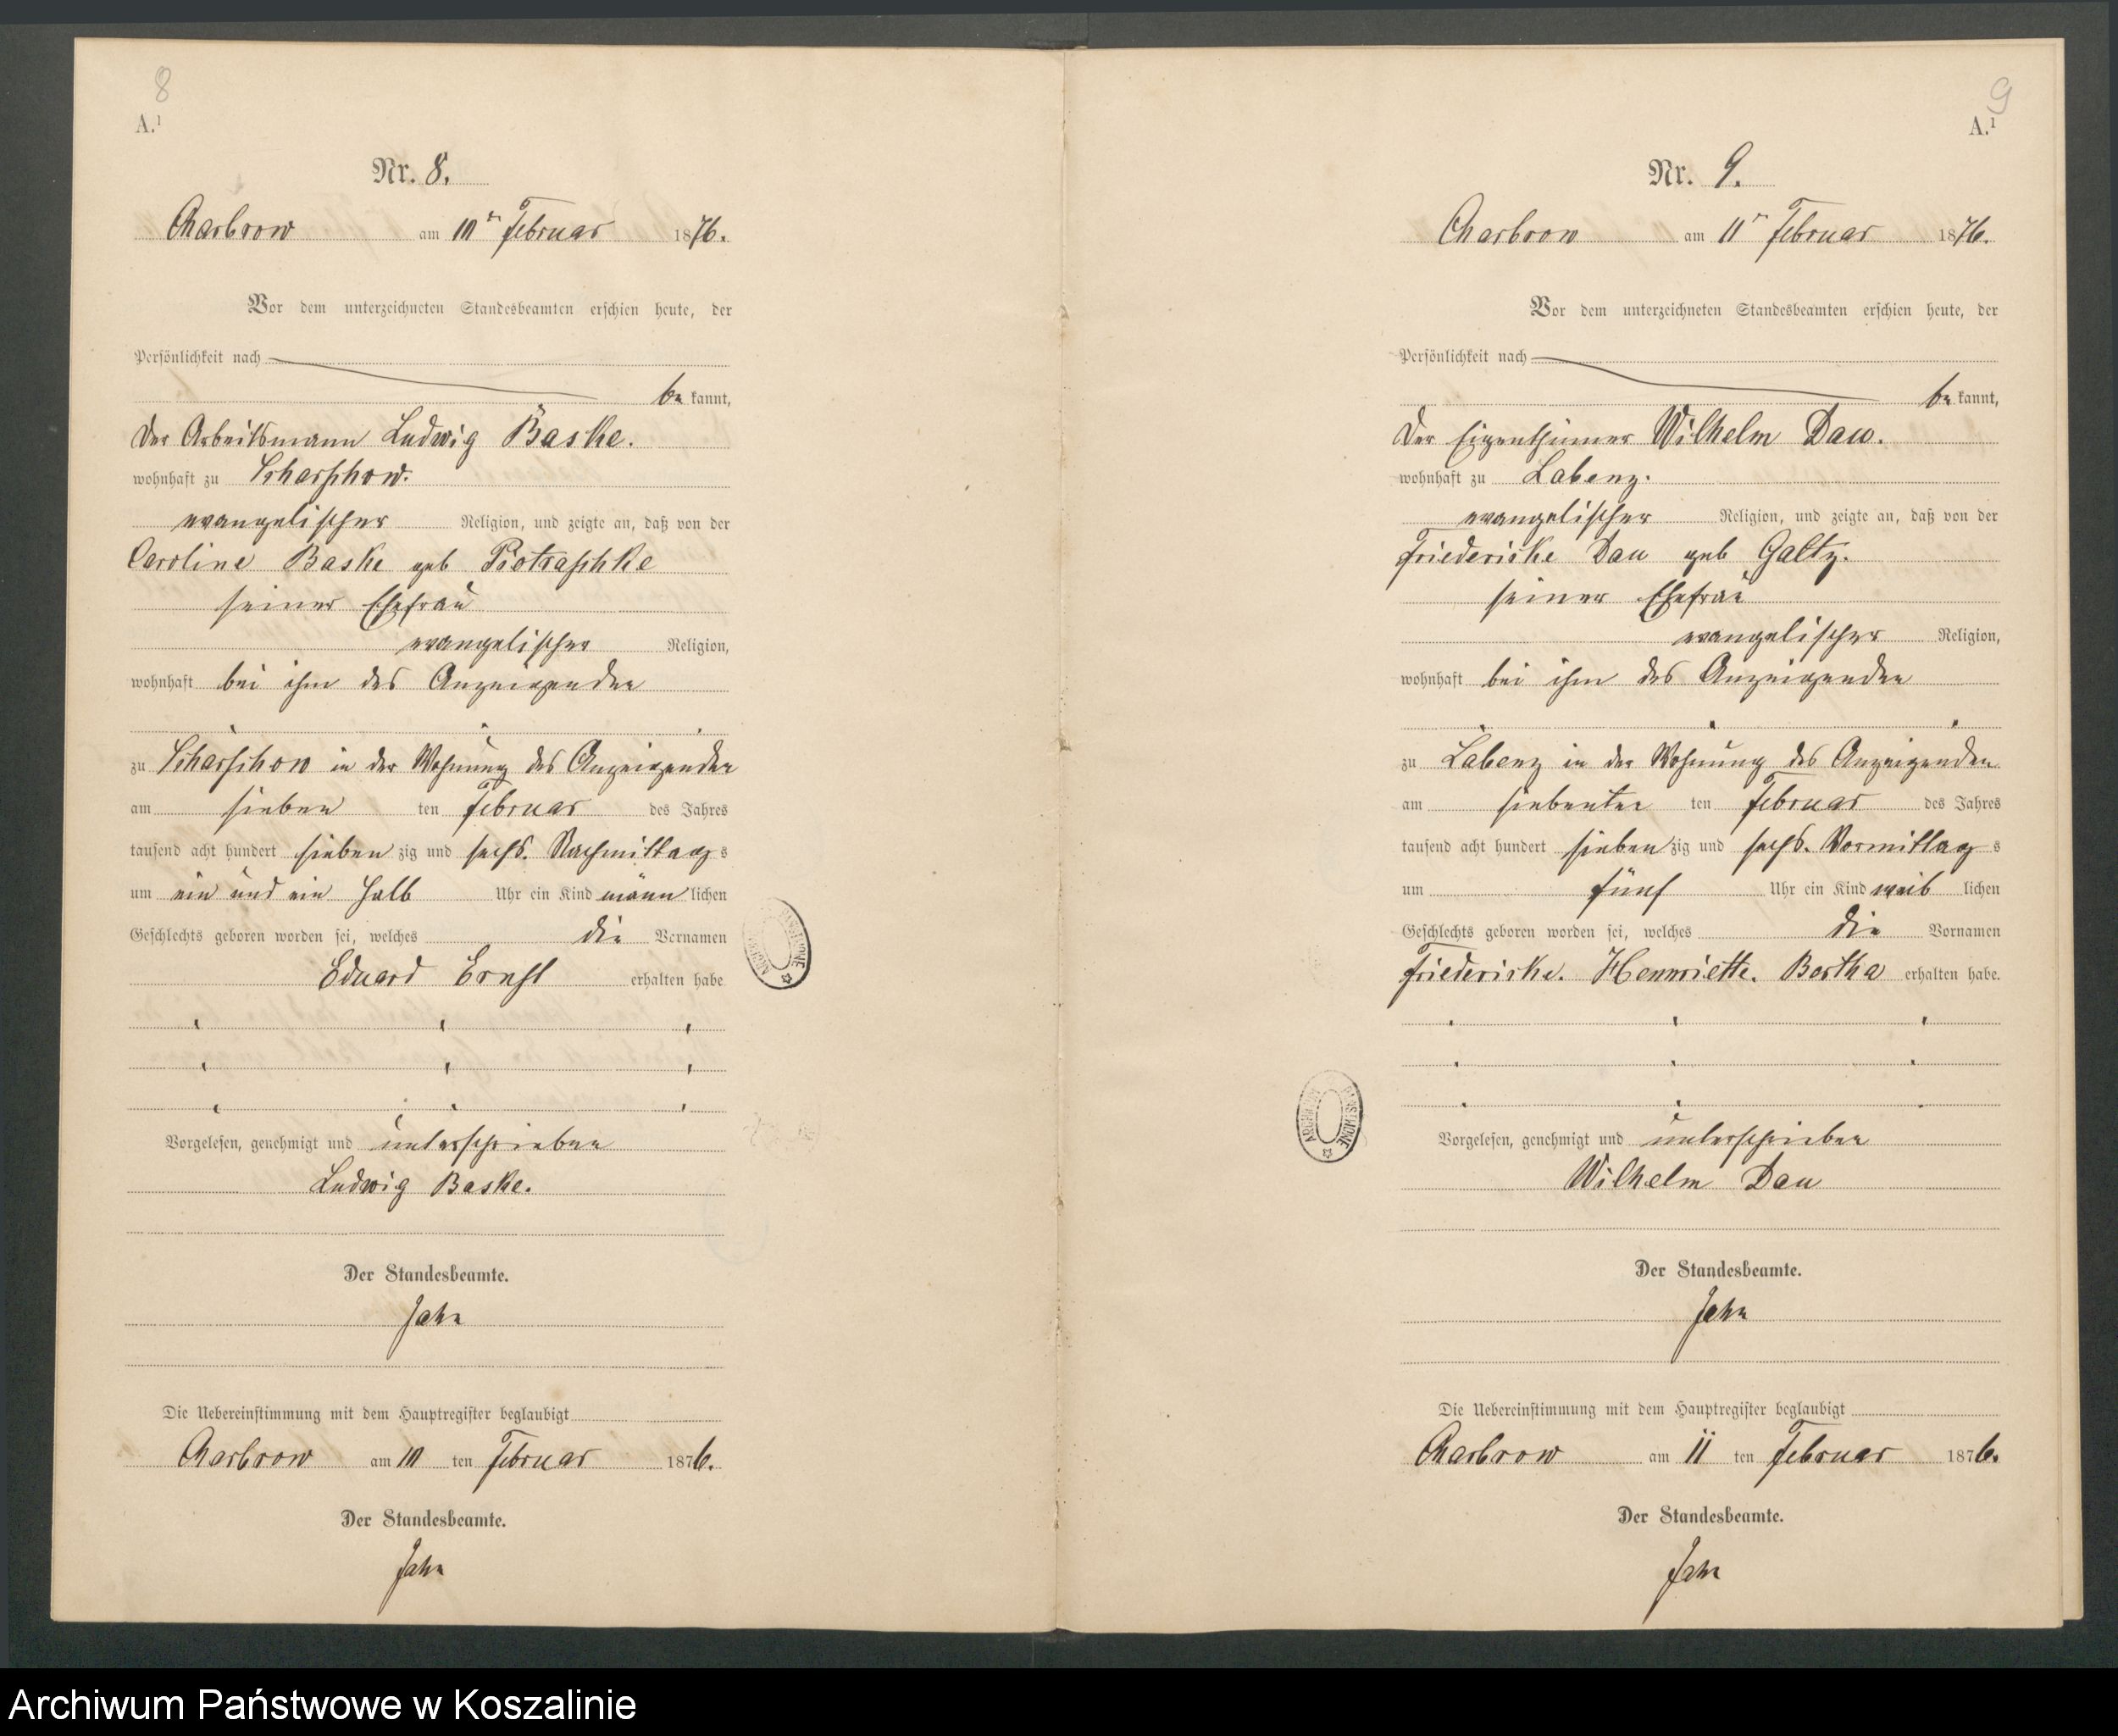 8
A.¹
Nr. 8.
Charbrow am 10ten Februar 1876.
Vor dem unterzeichneten Standesbeamten erschien heute, der
Persönlichkeit nach
be kannt,
der Arbeitsmann Ludwig Baske.
wohnhaft zu Scharschow.
evangelischer Religion, und zeigte an, daß von der
Caroline Baske geb Piotraschke
seiner Ehefrau
evangelischer Religion,
wohnhaft bei ihm des Anzeigenden
zu Scharschow in der Wohnung des Anzeigenden
am sieben ten Februar des Jahres
tausend acht hundert sieben zig und sechs. Nachmittag s
um ein und ein halb Uhr ein Kind männ lichen
Geschlechts geboren worden sei, welches die Vornamen
Eduard Ernst erhalten habe
Vorgelesen, genehmigt und unterschrieben
Ludwig Baske.
Der Standesbeamte.
Jahn
Die Uebereinstimmung mit dem Hauptregister beglaubigt
Charbrow am 10 ten Februar 1876.
Der Standesbeamte.
Jahn
9
A.¹
Nr. 9.
Charbrow am 11ten Februar 1876.
Vor dem unterzeichneten Standesbeamten erschien heute, der
Persönlichkeit nach
be kannt,
der Eigenthümer Wilhelm Dau.
wohnhaft zu Labenz.
evangelischer Religion, und zeigte an, daß von der
Friedericke Dau geb Galtz.
seiner Ehefrau
evangelischer Religion,
wohnhaft bei ihm des Anzeigenden
zu Labenz in der Wohnung des Anzeigenden
am siebenten ten Februar des Jahres
tausend acht hundert sieben zig und sechs. Vormittag s
um fünf Uhr ein Kind weib lichen
Geschlechts geboren worden sei, welches die Vornamen
Friedericke. Hennriette. Bertha erhalten habe.
Vorgelesen, genehmigt und unterschrieben
Wilhelm Dau
Der Standesbeamte.
Jahn
Die Uebereinstimmung mit dem Hauptregister beglaubigt
Charbrow am 11 ten Februar 1876.
Der Standesbeamte.
Jahn
Archiwum Państwowe w Koszalinie